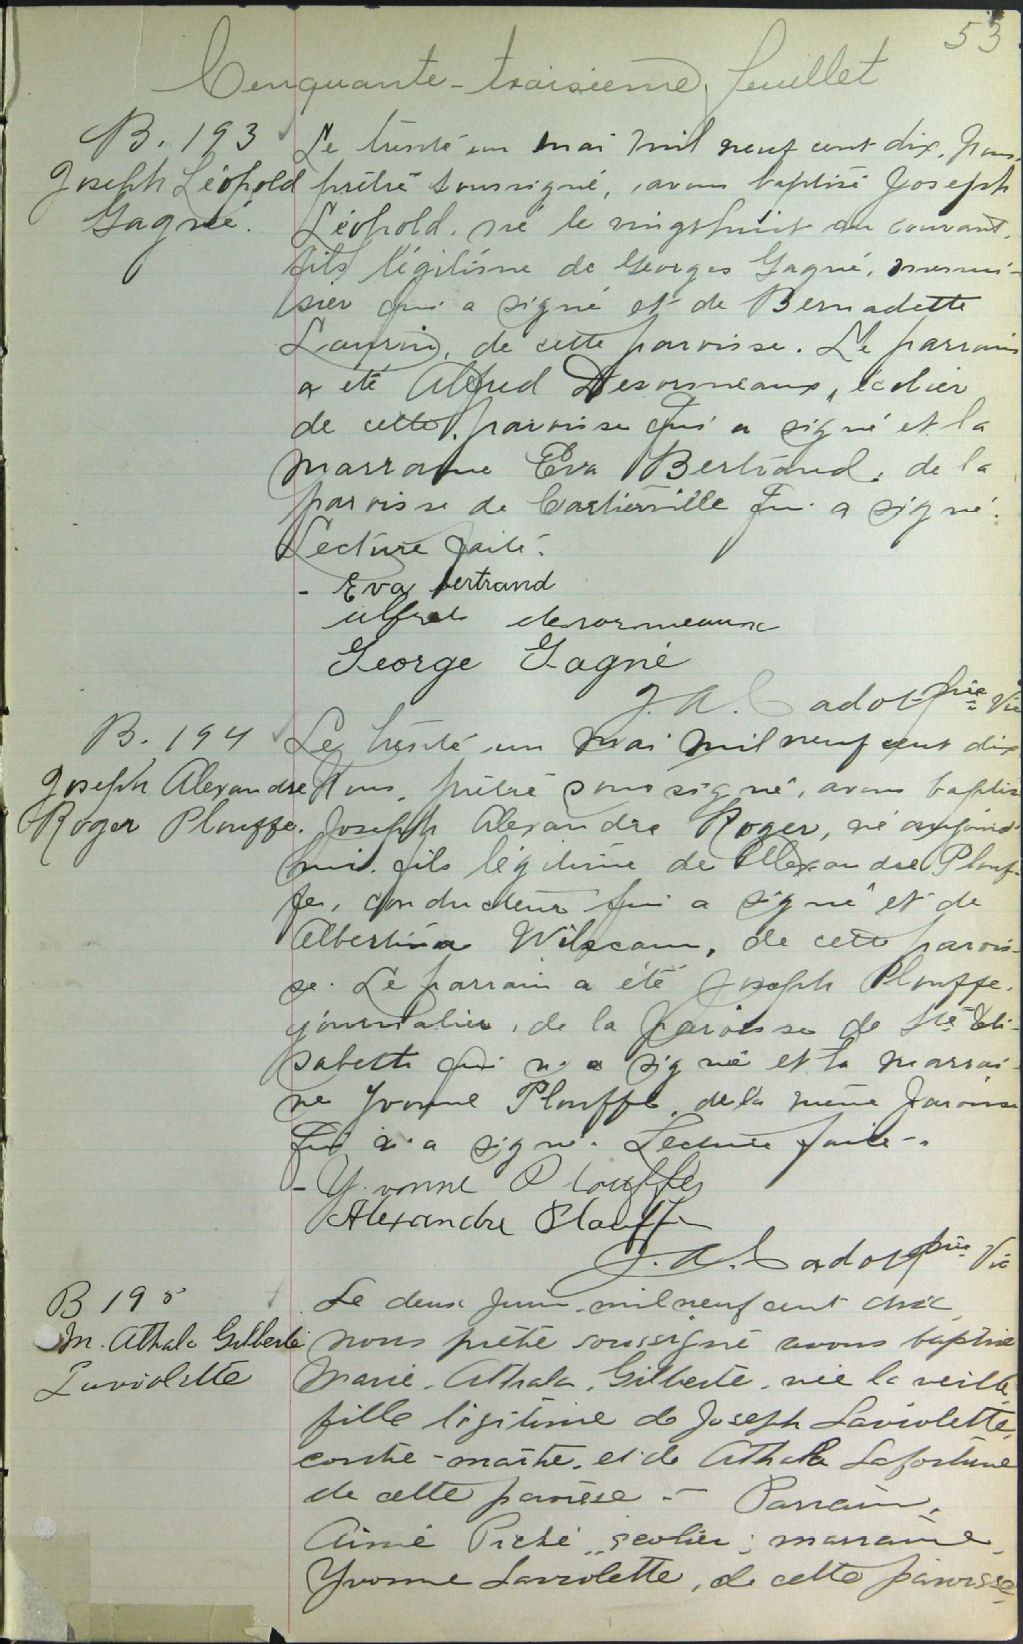 53
Cinquante-troisième feuillet
B. 193
Joseph Léopold
Gagné.
Le trente un mai mil neuf cent dix, Nous,
prêtre soussigné, avons baptisé Joseph
Léopold, né le vingt huit du courant,
fils légitime de Georges Gagné, menui-
sier qui a signé et de Bernadette
Laurin, de cette paroisse. Le parrain
a été Alfred Desormeaux, écolier
de cette paroisse qui a signé et la
marraine Eva Bertrand, de la
paroisse de Cartierville qui a signé.
Lecture faite.
- Eva bertrand
alfred desormeaux
George Gagné
J. A. Cadot ptre Vic
B. 194
Joseph Alexandre
Roger Plouffe.
Le trente un mai mil neuf cent dix
Nous, prêtre soussigné, avons baptisé
Joseph Alexandre Roger, né aujourd'
hui, fils légitime de Alexandre Plouf-
fe, conducteur qui a signé et de
Albertina, de cette parois-
se. Le parrain a été Joseph Plouffe,
journalier, de la paroisse de Ste Eli-
sabeth qui n'a signé et la marrai-
ne Yvonne Plouffe, de la même paroisse
qui a signé. Lecture faite -.
- Yvonne Plouffe
Alexandre Plouffe
J. A. Cadot ptre Vic
B 195
M. Athala Gilberte
Laviolette
Le deux juin mil neuf cent dix,
nous prêtre soussigné avons baptisé
Marie, Athala, Gilberte, née la veille,
fille légitime de Joseph Laviolette,
contre-maître, et de Athala Lafortune
de cette paroisse - Parrain,
Aimé Piché, écolier; marraine,
Yvonne Laviolette, de cette paroisse